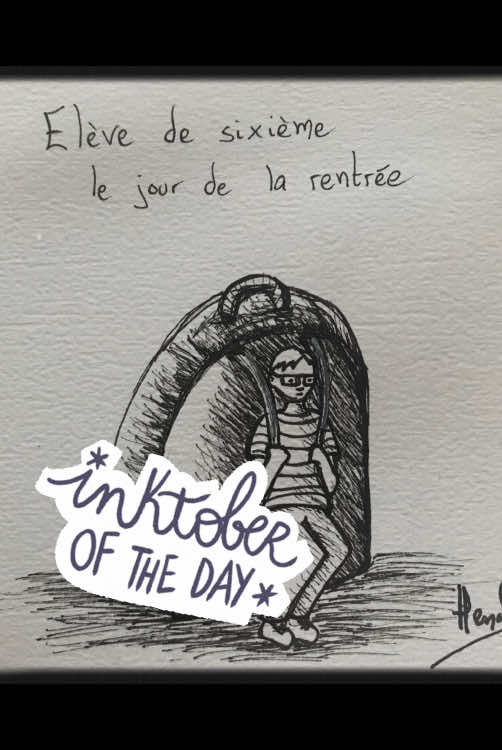 Elève de sixième
le jour de la rentrée
*inktober
OF THE DAY*